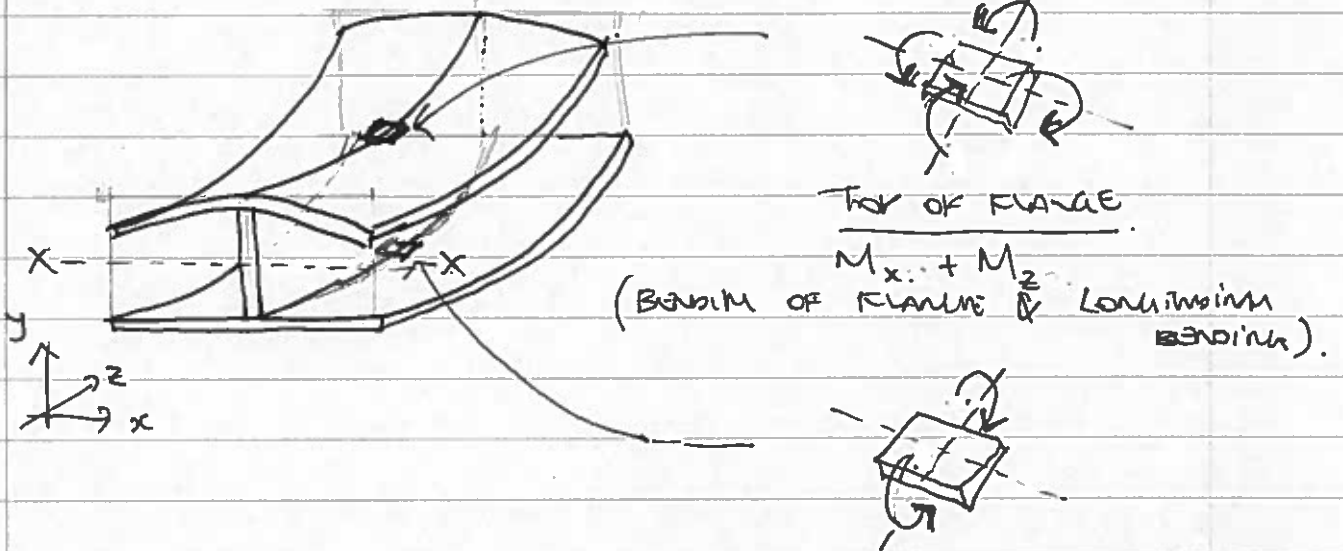 TOP OF FLANGE
Mx + Mz
(BENDING OF FLANGE & LONGITUDINAL
BENDING).
X
X
y
z
x